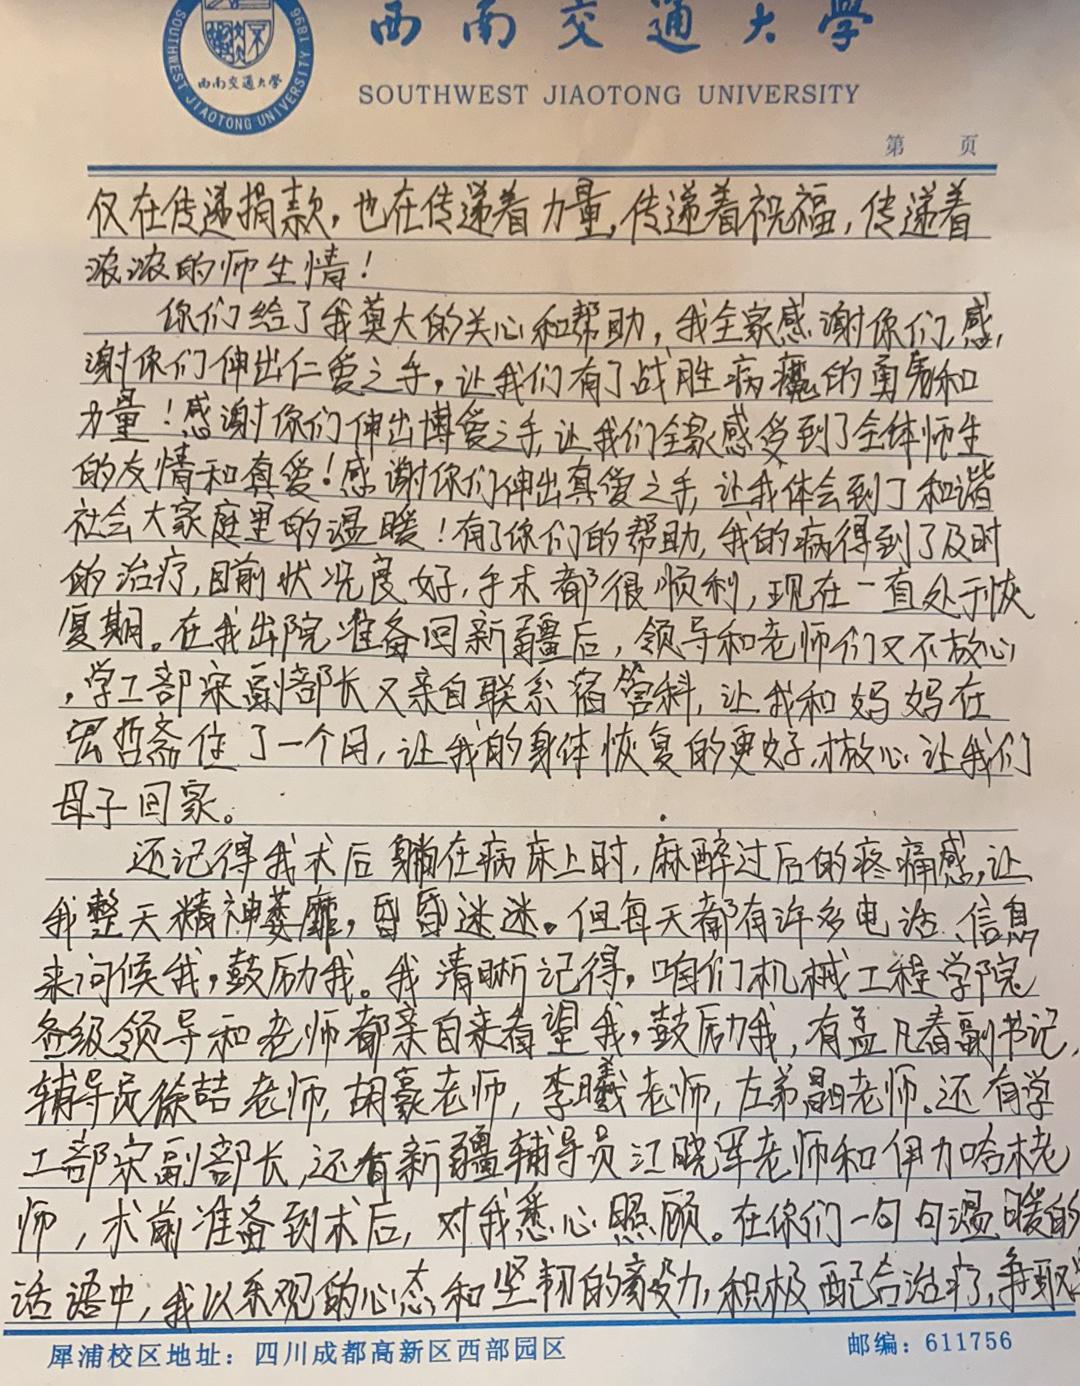 西南交通大学
SOUTHWEST JIAOTONG UNIVERSITY
SOUTHWEST JIAOTONG UNIVERSITY 1896
西南交通大学
第 页
仅在传递捐款，也在传递着力量，传递着祝福，传递着
浓浓的师生情！
你们给了我莫大的关心和帮助，我全家感谢你们，感
谢你们伸出仁爱之手，让我们有了战胜病魔的勇气和
力量！感谢你们伸出博爱之手，让我们全家感受到了全体师生
的友情和真爱！感谢你们伸出真爱之手，让我体会到了和谐
社会大家庭里的温暖！有了你们的帮助，我的病得到了及时
的治疗，目前状况良好，手术都很顺利，现在一直处于恢
复期。在我出院准备回新疆后，领导和老师们又不放心
，学工部宋副部长又亲自联系宿管科，让我和妈妈在
宏哲斋住了一个月，让我的身体恢复的更好，才放心让我们
母子回家。
还记得我术后躺在病床上时，麻醉过后的疼痛感，让
我整天精神萎靡，昏昏迷迷。但每天都有许多电话、信息
来问候我，鼓励我。我清晰记得，咱们机械工程学院
各级领导和老师都亲自来看望我，鼓励我，有孟凡春副书记，
辅导员徐喆老师，胡豪老师，李曦老师，左弟老师。还有学
工部宋副部长，还有新疆辅导员江晓军老师和伊力哈木老
师，术前准备到术后，对我悉心照顾。在你们一句句温暖的
话语中，我以乐观的心态和坚韧的毅力，积极配合治疗，争取
犀浦校区地址：四川成都高新区西部园区
邮编：611756